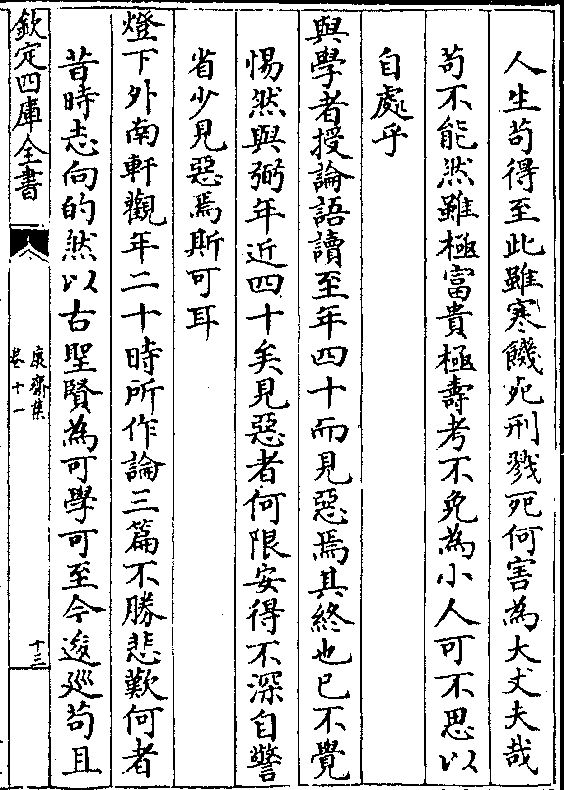 人生苟得至此雖寒饑死刑戮死何害為大丈夫哉
苟不能然雖極富貴極壽考不免為小人可不思以
自處乎
與學者授論語讀至年四十而見惡焉其終也已不覺
惕然與弼年近四十矣見惡者何限安得不深自警
省少見惡焉斯可耳
燈下外南軒觀年二十時所作論三篇不勝悲歎何者
昔時志向的然以古聖賢為可學可至今逡廵苟且
欽定四庫全書
康齋集
卷十一
十三